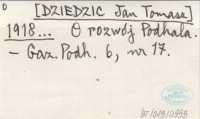 [DZIEDZIC Jan Tomasz]
1918... O rozwój Podhala.
- Gaz. Podh. 6, nr 17.